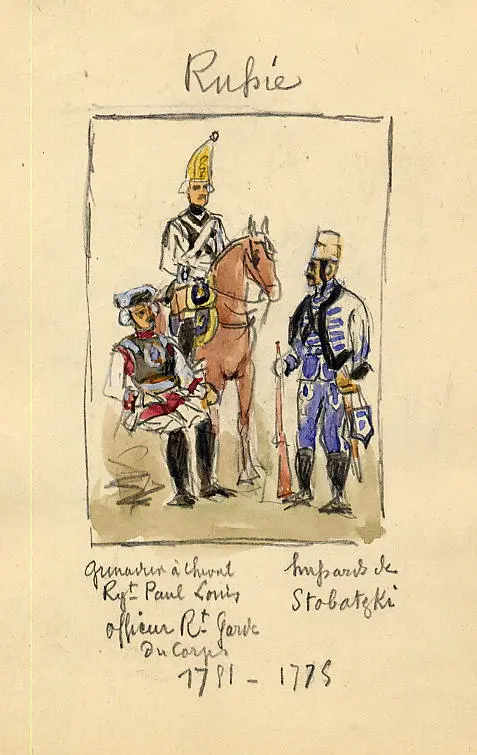 Russie
Grenadier à cheval
Rgt Paul Louis
officier Rt Garde
Du Corps
hussards de
Stobatzki
1751 - 1775